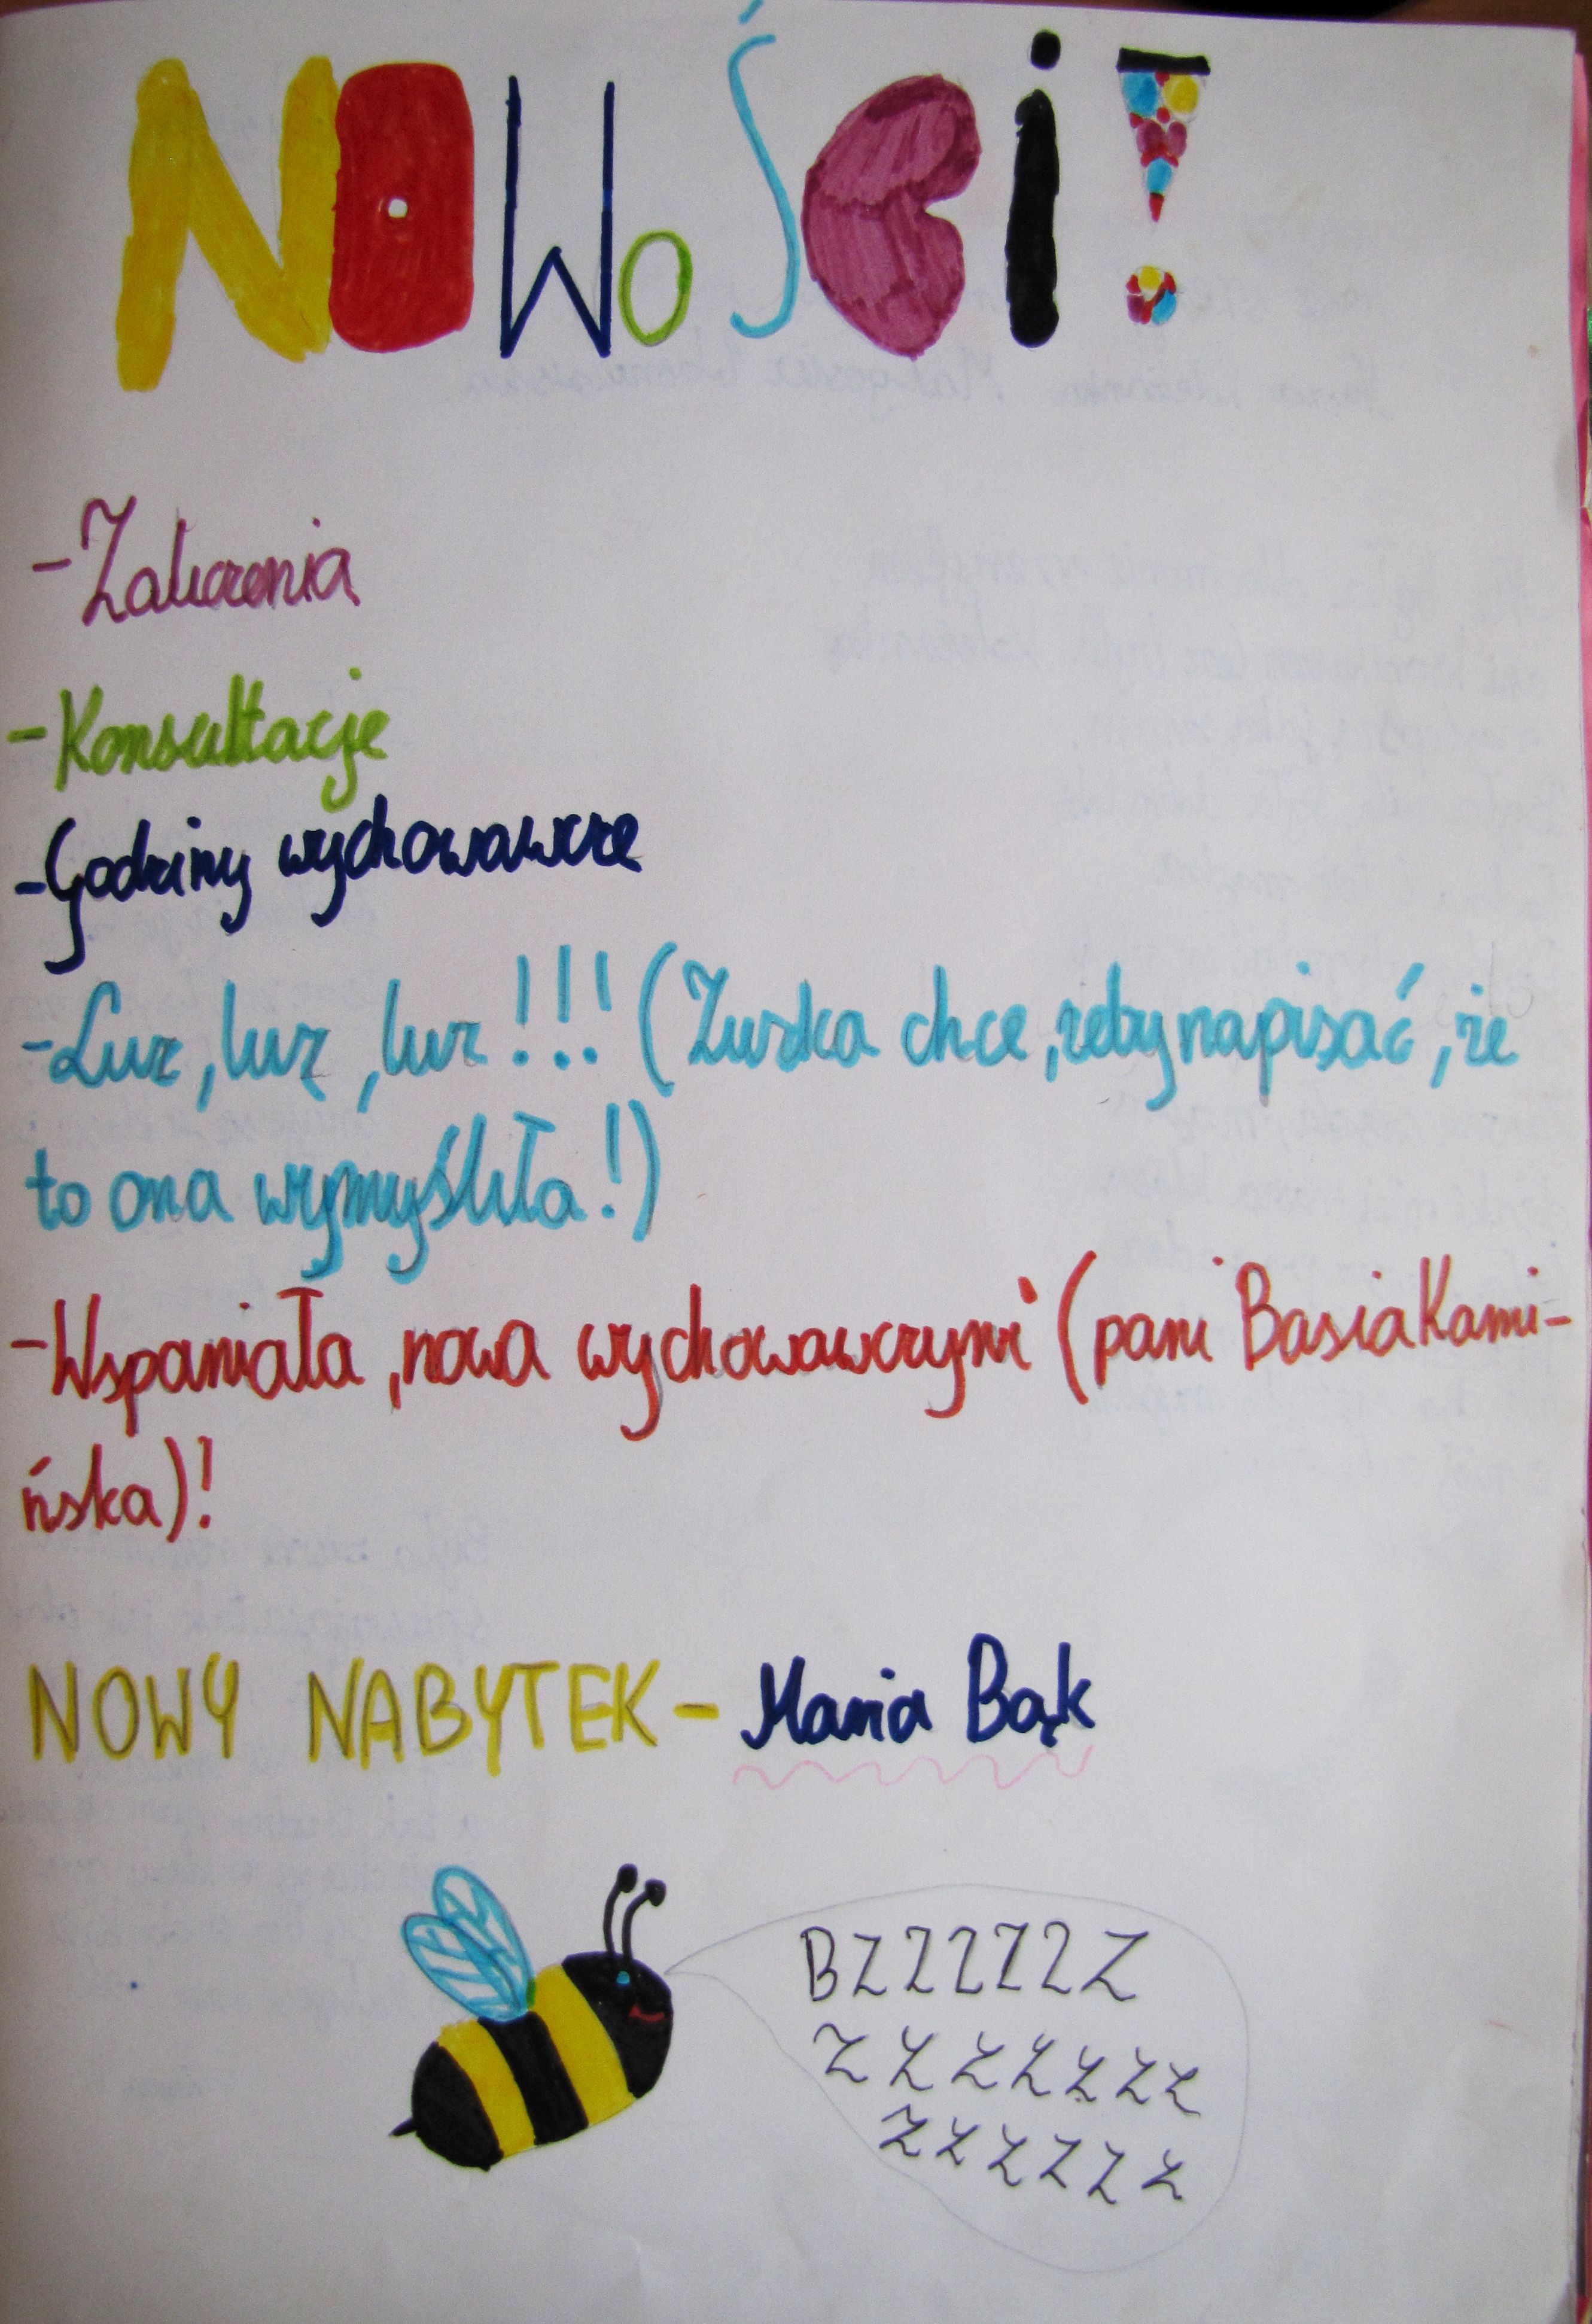 NOWoŚCi!
-Zaliczenia
-Konsultacje
-Godziny wychowawcze
-Luz, luz, luz!!! (Zuska chce, żeby napisać, że
to ona wymyśliła!)
-Wspaniała, nowa wychowawczyni (pani Basia Kami-
ńska)!
NOWY NABYTEK - Mania Bąk
BZZZZZZ
ZZZZZZZ
ZZZZZZ